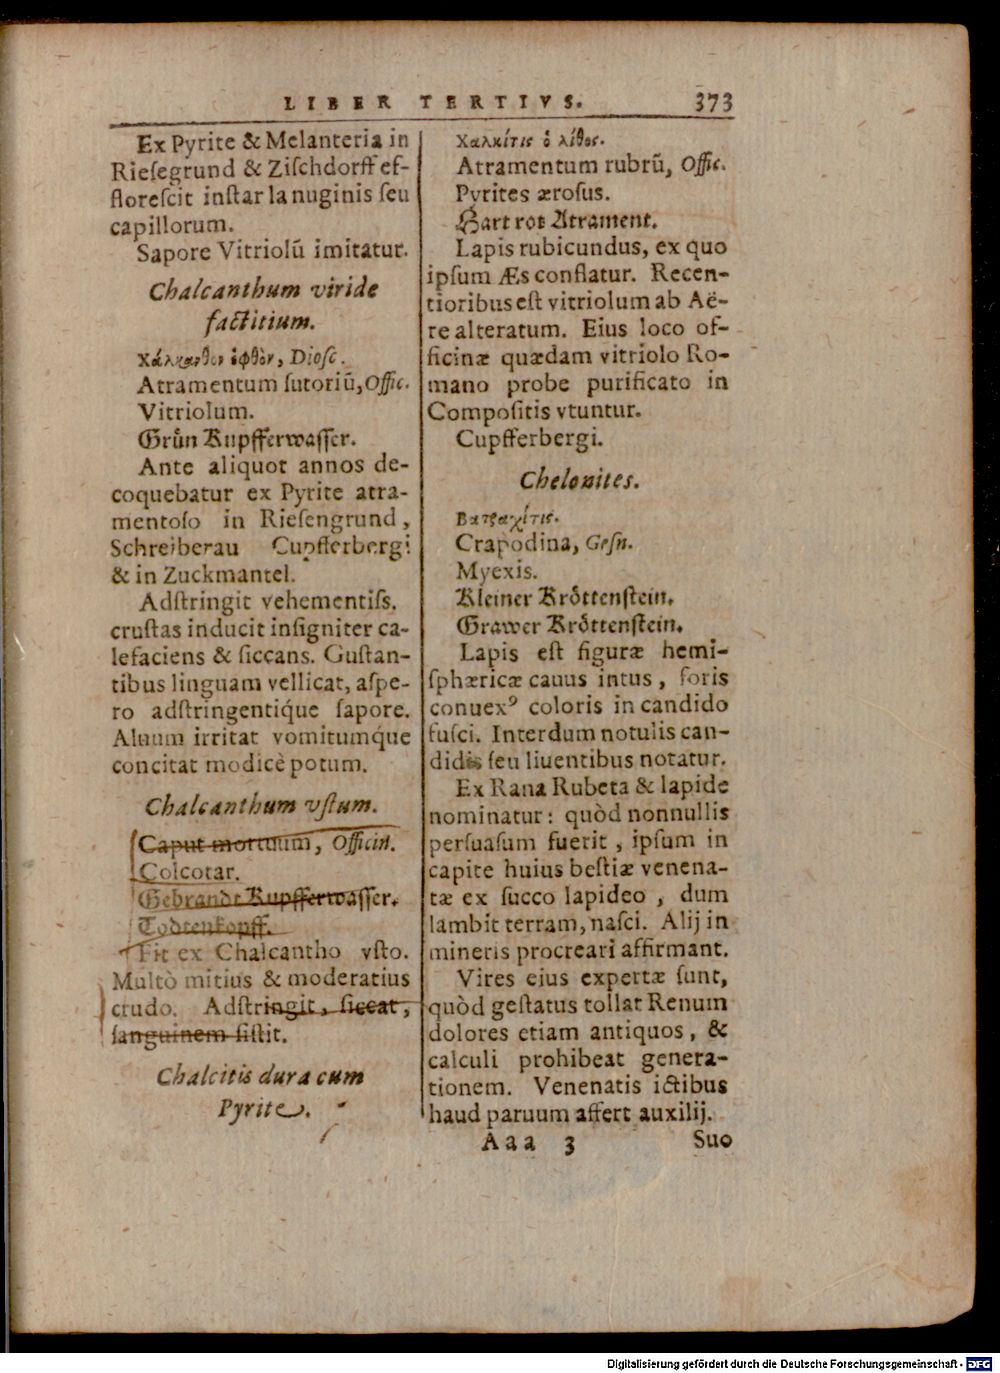 LIBER TERTIVS. 373
Ex Pyrite & Melanteria in
Rieſegrund & Ziſchdorff ef-
floreſcit inſtar lanuginis ſeu
capillorum.
Sapore Vitriolū imitatur.
Chalcanthum viride
factitium.
Χάλκανθον ἑφθὸν, Dioſc.
Atramentum ſutoriū, Offic.
Vitriolum.
Grůn Kupfferwaſſer.
Ante aliquot annos de-
coquebatur ex Pyrite atra-
mentoſo in Rieſengrund,
Schreiberau Cupfferbergi
& in Zuckmantel.
Adſtringit vehementiſs.
cruſtas inducit inſigniter ca-
lefaciens & ſiccans. Guſtan-
tibus linguam vellicat, aſpe-
ro adſtringentiq́ue ſapore.
Aluum irritat vomitumq́ue
concitat modicè potum.
Chalcanthum vſtum.
Caput mortuum, Officin.
Colcotar.
Gebrandt Kupfferwaſſer.
Todtenkopff.
Fit ex Chalcantho vſto.
Multò mitius & moderatius
crudo. Adſtringit, ſiccat,
ſanguinem ſiſtit.
Chalcitis dura cum
Pyrite.
Χαλκίτις ὁ λίθος.
Atramentum rubrū, Offic.
Pyrites æroſus.
Hart rot Atrament.
Lapis rubicundus, ex quo
ipſum Æs conflatur. Recen-
tioribus eſt vitriolum ab Aë-
re alteratum. Eius loco of-
ficinæ quædam vitriolo Ro-
mano probe purificato in
Compoſitis vtuntur.
Cupfferbergi.
Chelonites.
Βατραχίτις.
Crapodina, Geſn.
Myexis.
Kleiner Krőttenſtein.
Grawer Krőttenſtein.
Lapis eſt figuræ hemi-
ſphæricæ cauus intus, foris
conuexꝰ coloris in candido
fuſci. Interdum notulis can-
didis ſeu liuentibus notatur.
Ex Rana Rubeta & lapide
nominatur: quòd nonnullis
perſuaſum fuerit, ipſum in
capite huius beſtiæ venena-
tæ ex ſucco lapideo, dum
lambit terram, naſci. Alij in
mineris procreari affirmant.
Vires eius expertæ ſunt,
quòd geſtatus tollat Renum
dolores etiam antiquos, &
calculi prohibeat genera-
tionem. Venenatis ictibus
haud paruum affert auxilij.
Aaa 3 Suo
Digitalisierung gefördert durch die Deutsche Forschungsgemeinschaft - DFG